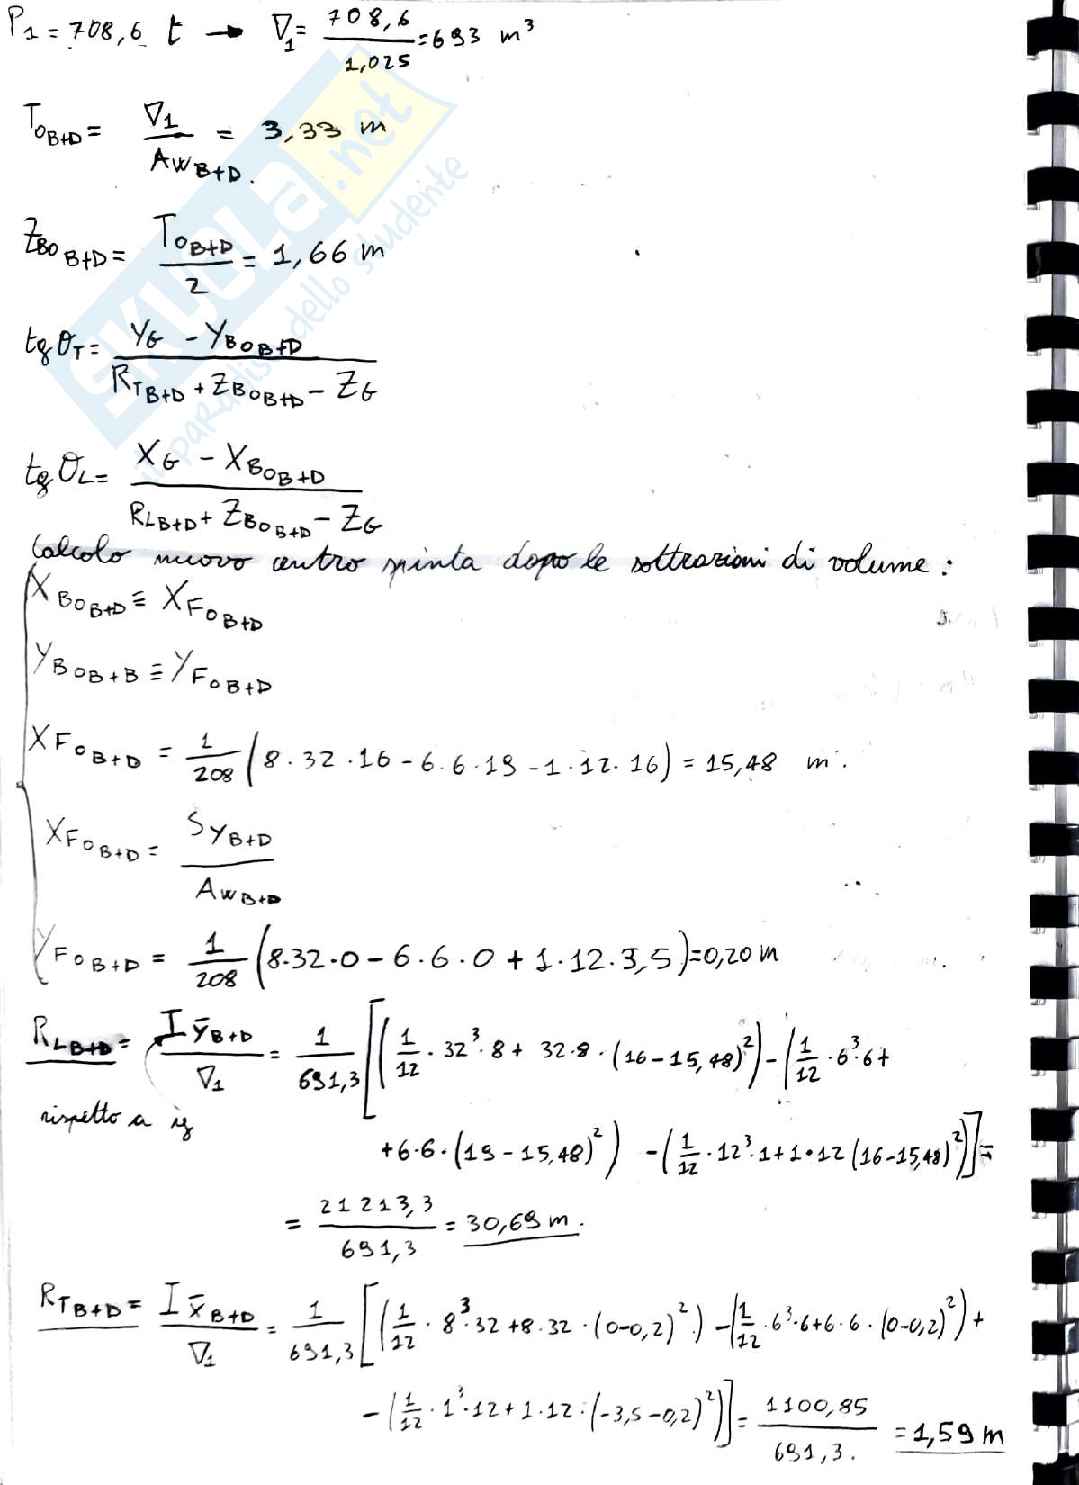 P1 = 708,6 t → ∇1 = 708,6 / 1,025 = 693 m³
T0B+D = ∇1 / AWB+D. = 3,33 m
ZB0B+D = T0B+D / 2 = 1,66 m
tg θT = (YG - YB0B+D) / (RTB+D + ZB0B+D - ZG)
tg θL = (XG - XB0B+D) / (RLB+D + ZB0B+D - ZG)
Calcolo nuovo centro spinta dopo le sottrazioni di volume :
XB0B+D ≡ XF0B+D
YB0B+B ≡ YF0B+D
XF0B+D = 1/208 (8·32·16 - 6·6·19 - 1·12·16) = 15,48 m.
XF0B+D = SYB+D / AWB+D
YF0B+D = 1/208 (8·32·0 - 6·6·0 + 1·12·3,5) = 0,20 m
RLB+D = IȳB+D / ∇1 = 1/691,3 [(1/12 · 32³·8 + 32·8·(16-15,48)²) - (1/12 · 6³·6+
rispetto a
+6·6·(19-15,48)²) - (1/12 · 12³·1+1·12(16-15,48)²)] =
= 21213,3 / 691,3 = 30,69 m.
RTB+D = Ix̄B+D / ∇1 = 1/691,3 [(1/12 · 8³·32+8·32·(0-0,2)²) - (1/12 · 6³·6+6·6·(0-0,2)²)+
- (1/12 · 1³·12+1·12·(-3,5-0,2)²)] = 1100,85 / 691,3. = 1,59 m
SKUOLA.net
il paradiso dello studente